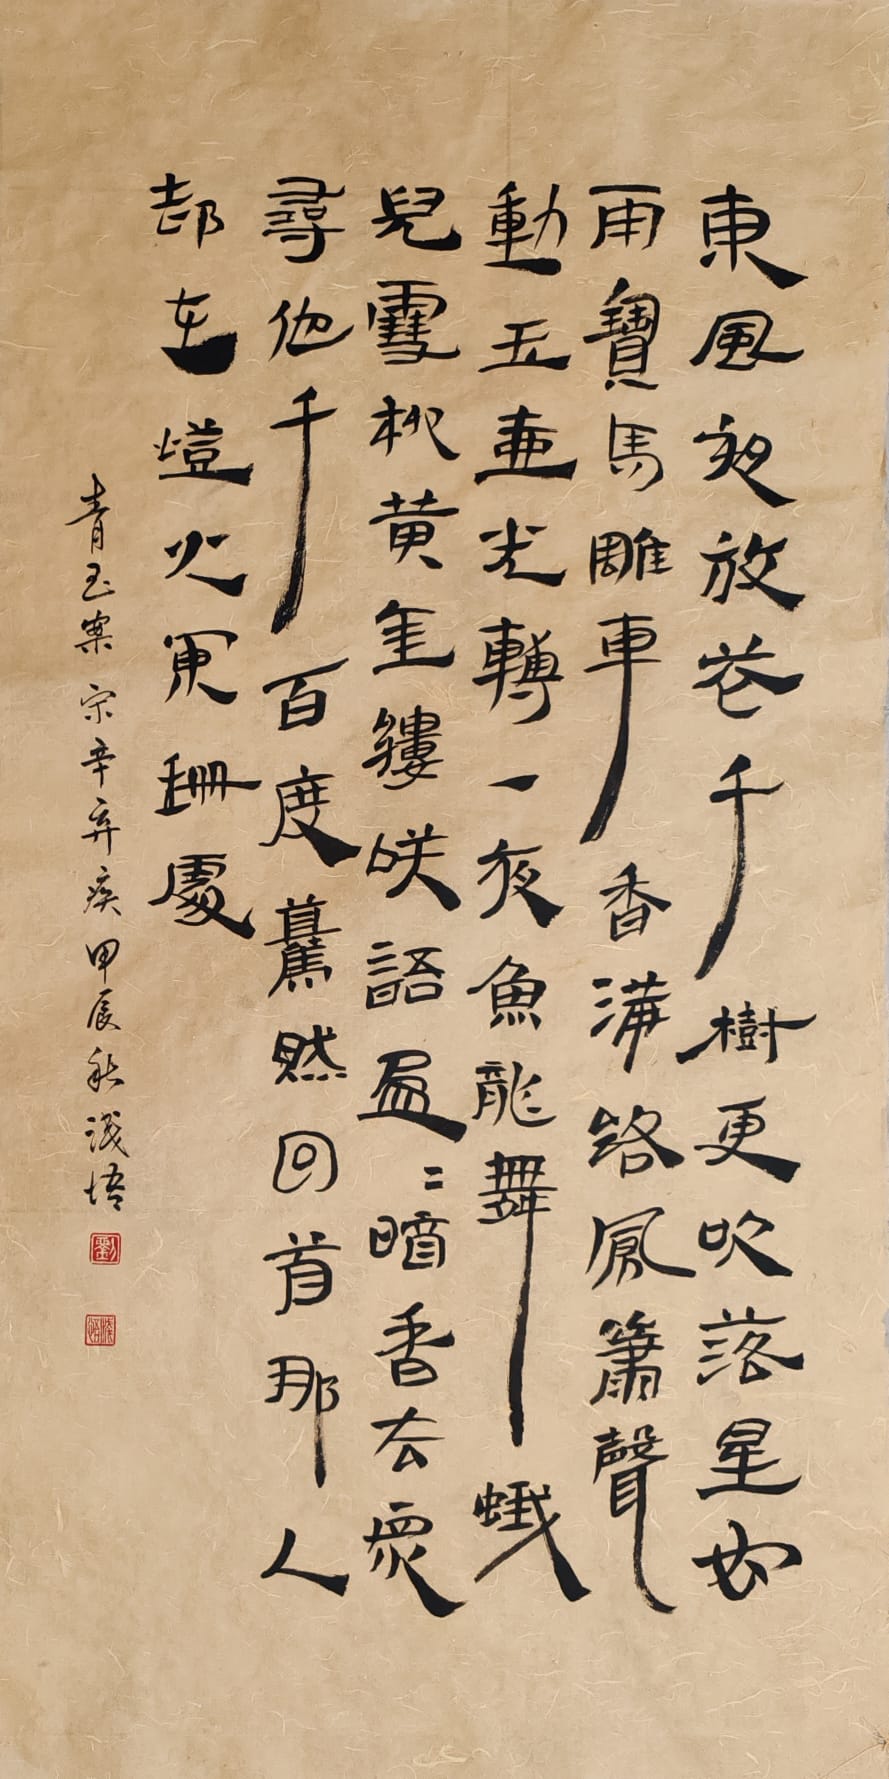 東風夜放花千樹更吹落星如
雨寶馬雕車香滿路鳳簫聲
動玉壺光轉一夜魚龍舞蛾
兒雪柳黃金縷咲語盈〻暗香去眾
尋他千百度驀然回首那人
却在燈火闌珊處
青玉案 宋辛弃疾 甲辰秋淺悟
劉